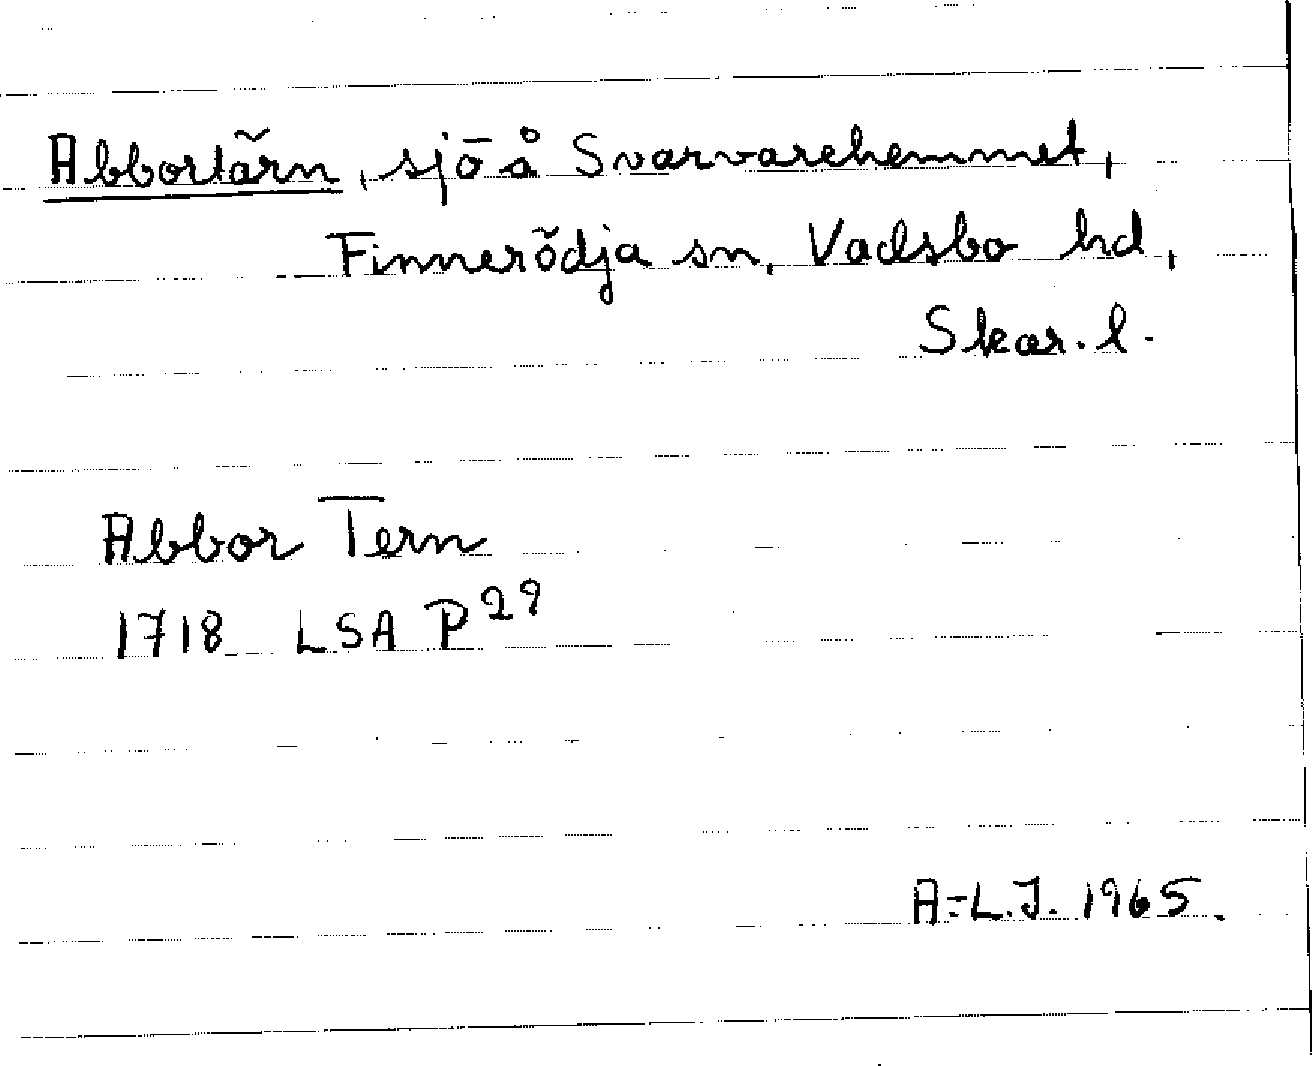 Abbortärn, sjö å Svarvarehemmet,
Finnerödja sn, Vadsbo hd,
Skar. l.
Abbor Tern
1718 LSA P 29
A-L.J. 1965.